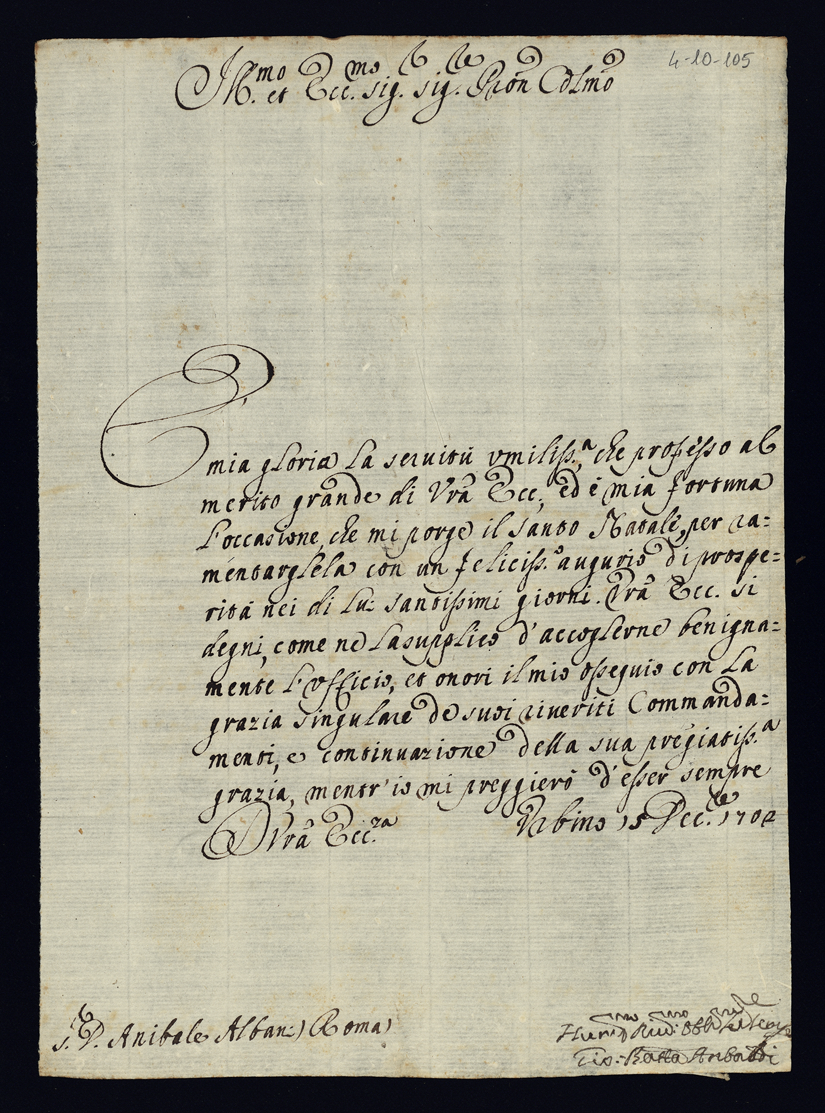 4-10-105
Ill.mo et Ecc.mo Sig. Sig.re Pron Colmo
È
mia gloria la seruitù vmiliss.a, che professo al
merito grande di Vrã Ecc., ed è mia fortuna
l'occasione, che mi porge il Santo Natale, per ra=
mentarglela con un feliciss.o augurio di prospe=
rità nei di Lui santissimi giorni. Vrã Ecc. si
degni, come ne la supplico d'accoglerne benigna=
mente l'Vfficio, et onori il mio ossequio con la
grazia singulare de suoi riueriti Commanda=
menti, e continuazione della sua pregiatiss.a
grazia, mentr'io mi preggierò d'esser sempre
D Vrã Ecc.za Vrbino 15 Dec.bre 1702
S.r D. Anibale Albani Roma
Gio: Batta